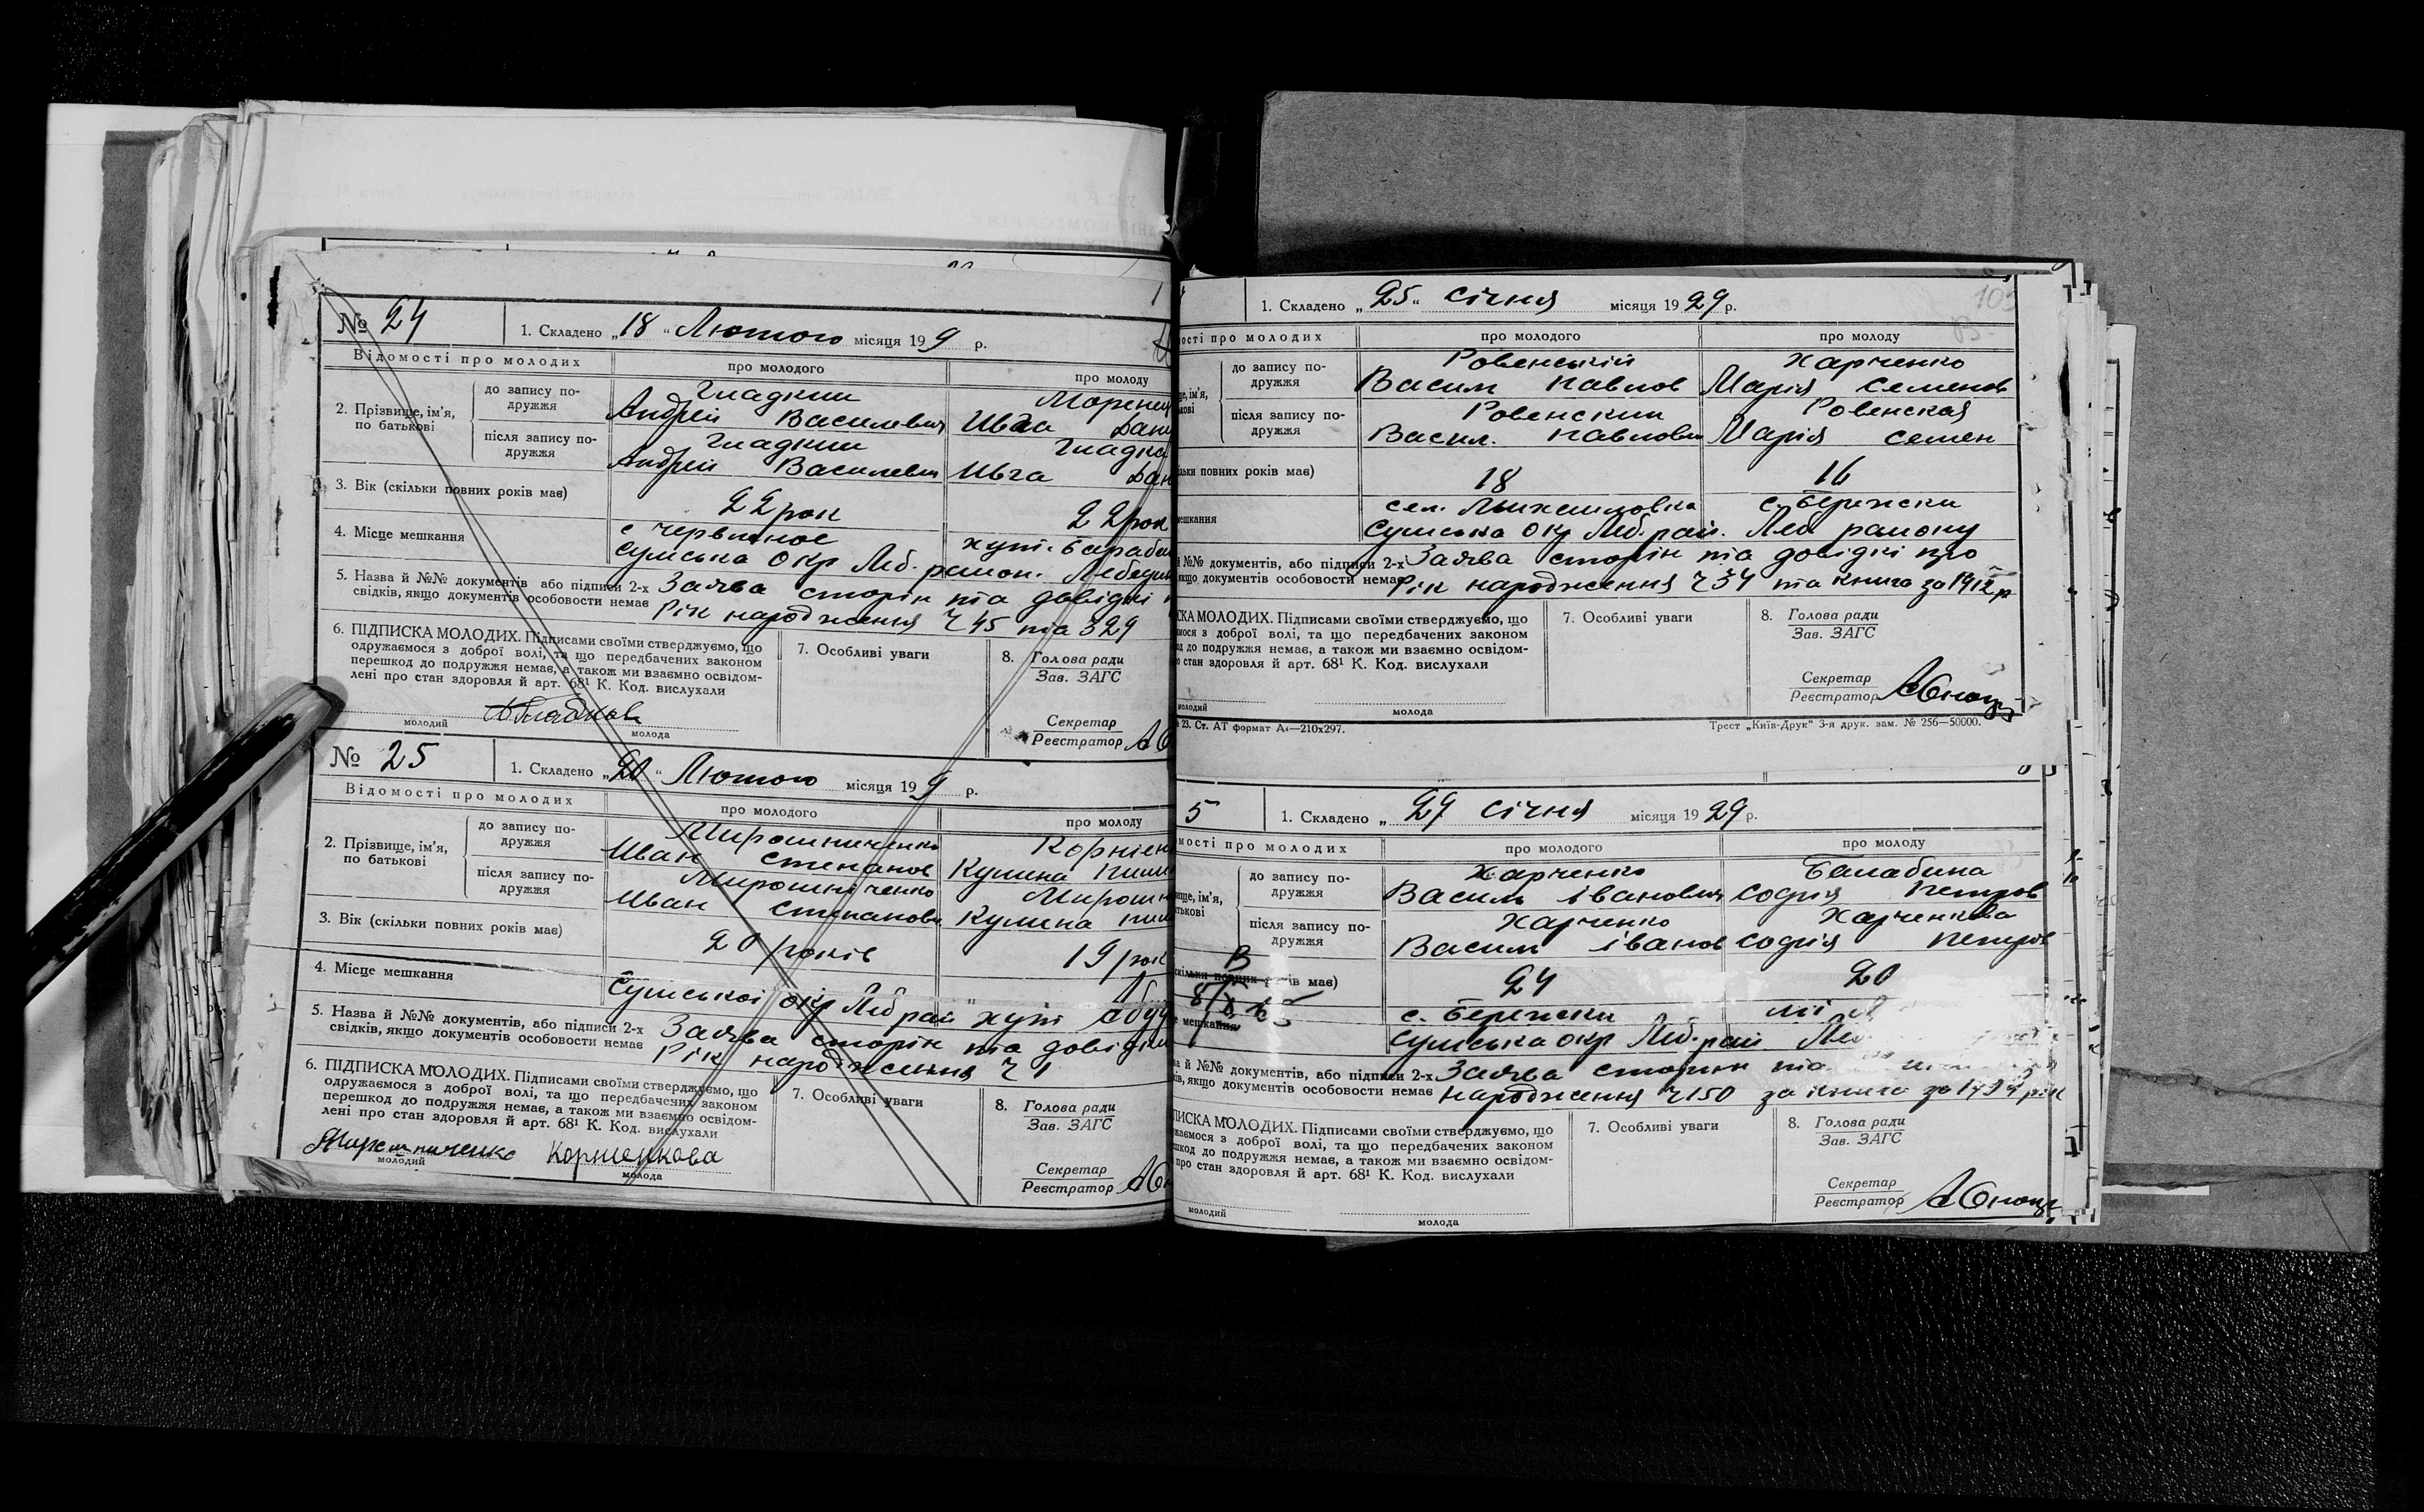 № 24
1. Складено „18“ Лютого місяця 19 9 р.
Відомості про молодих
про молодого
про молоду
2. Прізвище, ім'я, по батькові
до запису подружжя
Гладкий
Андрей Василевич
Ивга
після запису подружжя
Гладкий
Андрей Василевич
Ивга
3. Вік (скільки повних років має)
22 рок
22 рок
4. Місце мешкання
с Червлоное
Сумська Окр Леб. район.
хут.
5. Назва й №№ документів або підписи 2-х
свідків, якщо документів особовости немає
Заява сторін та довідкі
Рік народження Ч 45 та 329
6. ПІДПИСКА МОЛОДИХ. Підписами своїми стверджуємо, що
одружаємося з доброї волі, та що передбачених законом
перешкод до подружжя немає, а також ми взаємно освідом-
лені про стан здоровля й арт. 68¹ К. Код. вислухали
молодий
молода
7. Особливі уваги
8. Голова ради
Зав. ЗАГС
Секретар
Реєстратор
№ 25
1. Складено „20“ Лютого місяця 19 9 р.
Відомості про молодих
про молодого
про молоду
2. Прізвище, ім'я, по батькові
до запису подружжя
Мирошниченко
Иван Степанов
Кулина
після запису подружжя
Мирошниченко
Иван Степанов
Кулина
3. Вік (скільки повних років має)
20 років
19 рок
4. Місце мешкання
Сумської окр Леб рай хут
5. Назва й №№ документів, або підписи 2-х
свідків, якщо документів особовости немає
Заява сторін та довідкі
Рік народження Ч 1
6. ПІДПИСКА МОЛОДИХ. Підписами своїми стверджуємо, що
одружаємося з доброї волі, та що передбачених законом
перешкод до подружжя немає, а також ми взаємно освідом-
лені про стан здоровля й арт. 68¹ К. Код. вислухали
Мирошниченко
молодий
Корниенкова
молода
7. Особливі уваги
8. Голова ради
Зав. ЗАГС
Секретар
Реєстратор
103
1. Складено „25“ січня місяця 1929 р.
ості про молодих
про молодого
про молоду
до запису подружжя
Ровенський
Харченко
Васил Павлов
Марія Семенов
після запису подружжя
Ровенский
Ровенская
Васил. Павлович
Марія Семен
ільки повних років має)
18
16
мешкання
сел. Михайловка
с. Бережки
Сумська Окр Леб. рай.
Леб. району
й №№ документів, або підписи 2-х
якщо документів особовости немає
Заява сторін та довідкі про
Рік народження Ч 34 та книга за 1912 р
СКА МОЛОДИХ. Підписами своїми стверджуємо, що
ємося з доброї волі, та що передбачених законом
од до подружжя немає, а також ми взаємно освідом-
о стан здоровля й арт. 68¹ К. Код. вислухали
молодий
молода
7. Особливі уваги
8. Голова ради
Зав. ЗАГС
Секретар
Реєстратор
23. Ст. АТ формат А₄—210х297.
Трест „Київ-Друк“ 3-я друк. зам. № 256—50000.
5
1. Складено „27 січня місяця 1929 р.
мості про молодих
про молодого
про молоду
до запису подружжя
Харченко
Балабина
Василь Іванович
Софія Петров
після запису подружжя
Харченко
Харченкова
Василь Іванов
Софія Петров
скільки повних років має)
24
20
е мешкання
с. Бережки
Сумська окр Леб. рай.
ва й №№ документів, або підписи 2-х
ків, якщо документів особовости немає
Заява сторін та
народження Ч 150 за книго за
ПИСКА МОЛОДИХ. Підписами своїми стверджуємо, що
жаємося з доброї волі, та що передбачених законом
шкод до подружжя немає, а також ми взаємно освідом-
про стан здоровля й арт. 68¹ К. Код. вислухали
молодий
молода
7. Особливі уваги
8. Голова ради
Зав. ЗАГС
Секретар
Реєстратор